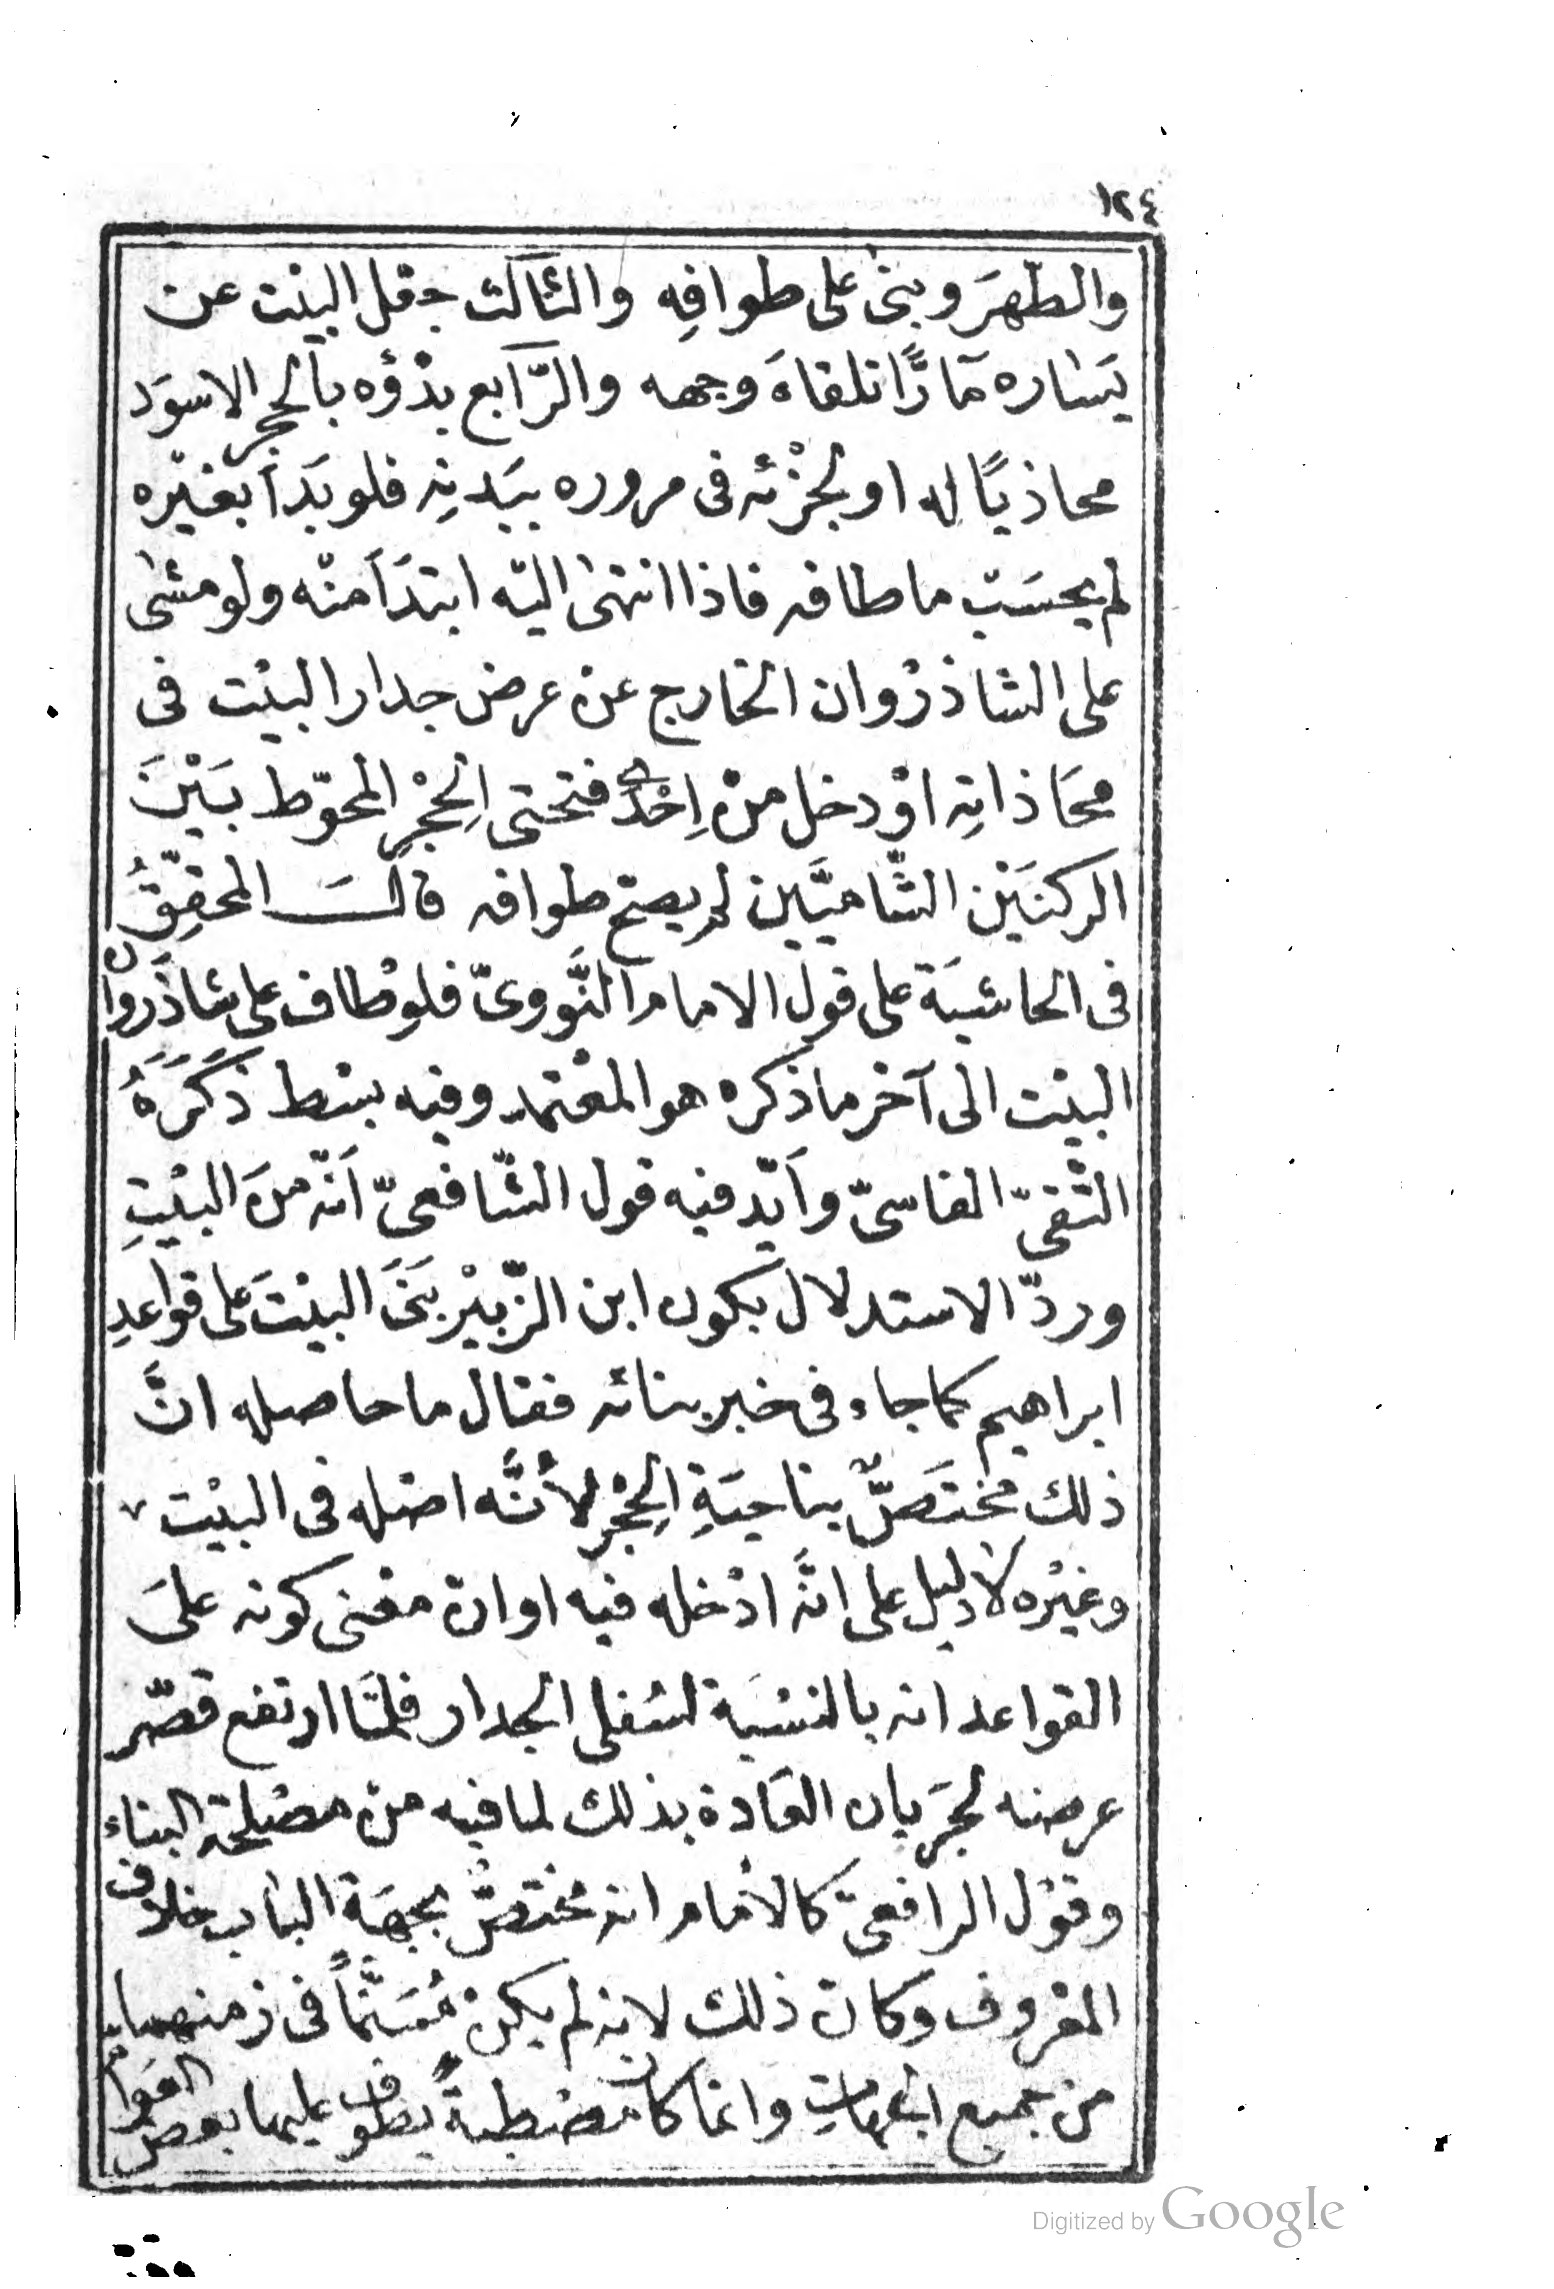 ١٢٤
والطّهرَ وبنىٰ على طوافِه والثّالث جعْل البيْت عن
يَسٰاره مٓارًّا تلقاءَ وجهه والرّابع بدْؤه بالحجر الاسوَد
محاذيًا له او لجُزْئه فى مروره ببَدنِه فلو بَدَأ بغيْره
لم يحسَبْ ما طافه فاذا انتهىٰ اليْه ابتدَأ منْه ولو مشٰى
على الشاذرْوان الخارج عنْ عرض جدار البيْت فى
محَاذاتِه اوْ دخل منْ اِحْدٰى فتحتى الحِجْر المحوّط بَيْنَ
الركنَيْن الشّاميَّين لم يصحّ طوافه قالَ المحقِّقُ
فى الحاشيَة على قول الامام النَّوويّ فلو طاف على شاذَروان
البيْت الى آخر ما ذكره هو المعْتمد وفيه بسْط ذَكَرَهُ
التّقيّ الفاسيّ وأيّد فيه قول الشّافعيّ أنّه منَ البيْتِ
وردّ الاستدلال بكون ابن الزّبيْر بَنَى البيْتَ على قواعدِ
ابراهيم كما جاء فى خبر بنائه فقال ما حاصله انَّ
ذلك مختَصٌّ بناحيَةِ الحِجْر لأنَّه ادْخله فى البيْت
وغيْره لا دليل على انَّه ادْخله فيه او انّ معْنى كونه علىَ
القواعد انه بالنسْبَة لسُفلى الجدار فلمَّا ارتفع قصّر
عرضه لجرَيان العَادة بذلك لما فيه منْ مصْلحة البناء
وقوْل الرافعيّ كالامام انه مختصٌّ بجهَة البٰاب خلاف
المعْروف وكان ذلك لانه لم يكنْ مُسَنَّماً فى زمنهما
من جميع الجهات وانما كان مصْطبةً يطوف عليها بعض العَوا